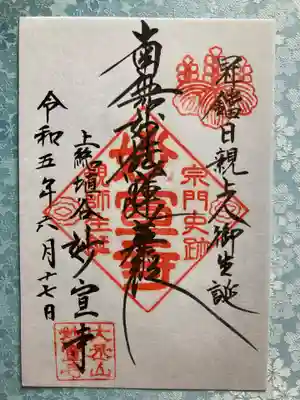 冠鐺日親上人御生誕
南無妙法蓮華経
宗門史跡
妙宣寺
親師生誕
上総埴谷 妙宣寺
大乗山
妙宣寺
令和五年六月十七日